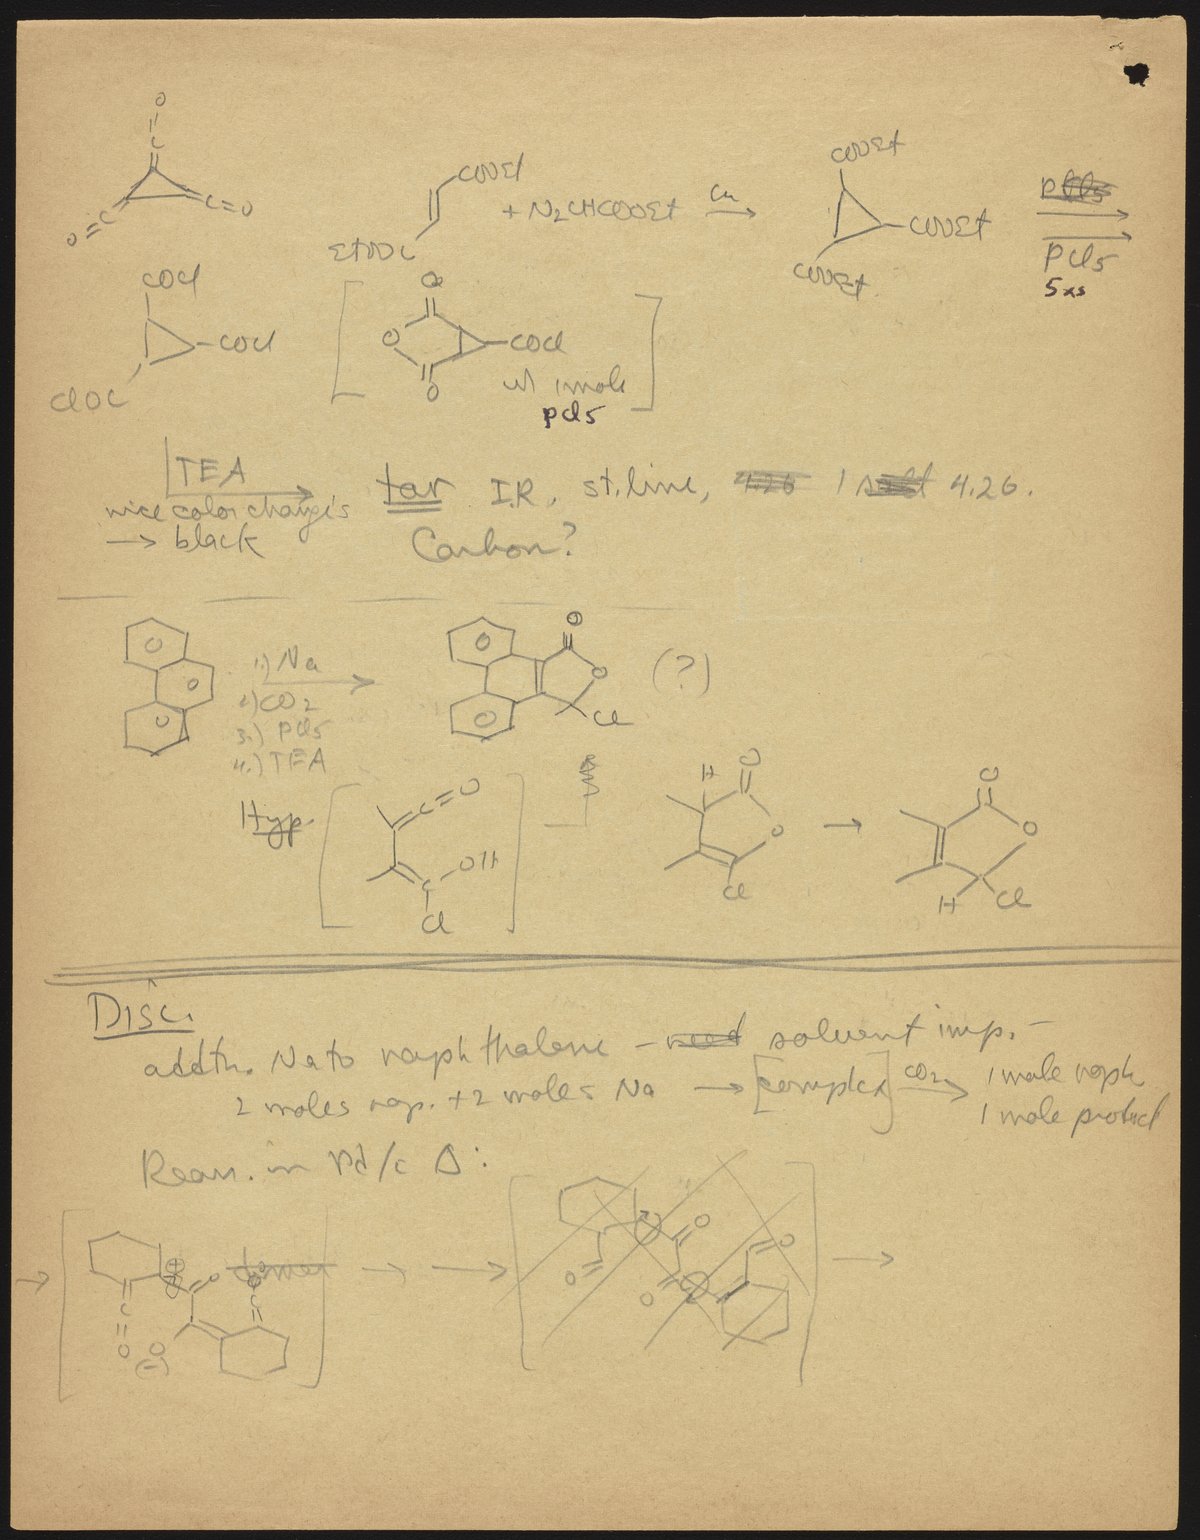 O
=
C
C=O
O=C
COOEt
EtOOC
+ N2CHCOOEt
Cu
COOEt
COOEt
COOEt
PCl5
5xs
COCl
COCl
ClOC
O
O
O
COCl
w/ 1 mole
PCl5
TEA
nice color changes
→ black
tar I.R. st. line, 4.26.
Carbon?
1.) Na
2.) CO2
3.) PCl5
4.) TEA
O
O
Cl
(?)
Hyp.
C=O
C
OH
Cl
H
O
O
Cl
→
O
O
H
Cl
Disc.
addtn. Na to naphthalene – solvent imp. –
2 moles nap. + 2 moles Na → [complex] CO2 → 1 mole naph
1 mole product
Rean. in Pd/c Δ: